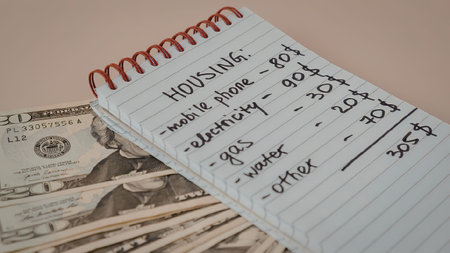 HOUSING:
- mobile phone - 80$
- electricity - 90$
- gas - 30$
- water - 20$
- other - 70$
305$
PL 33057556 A
L12